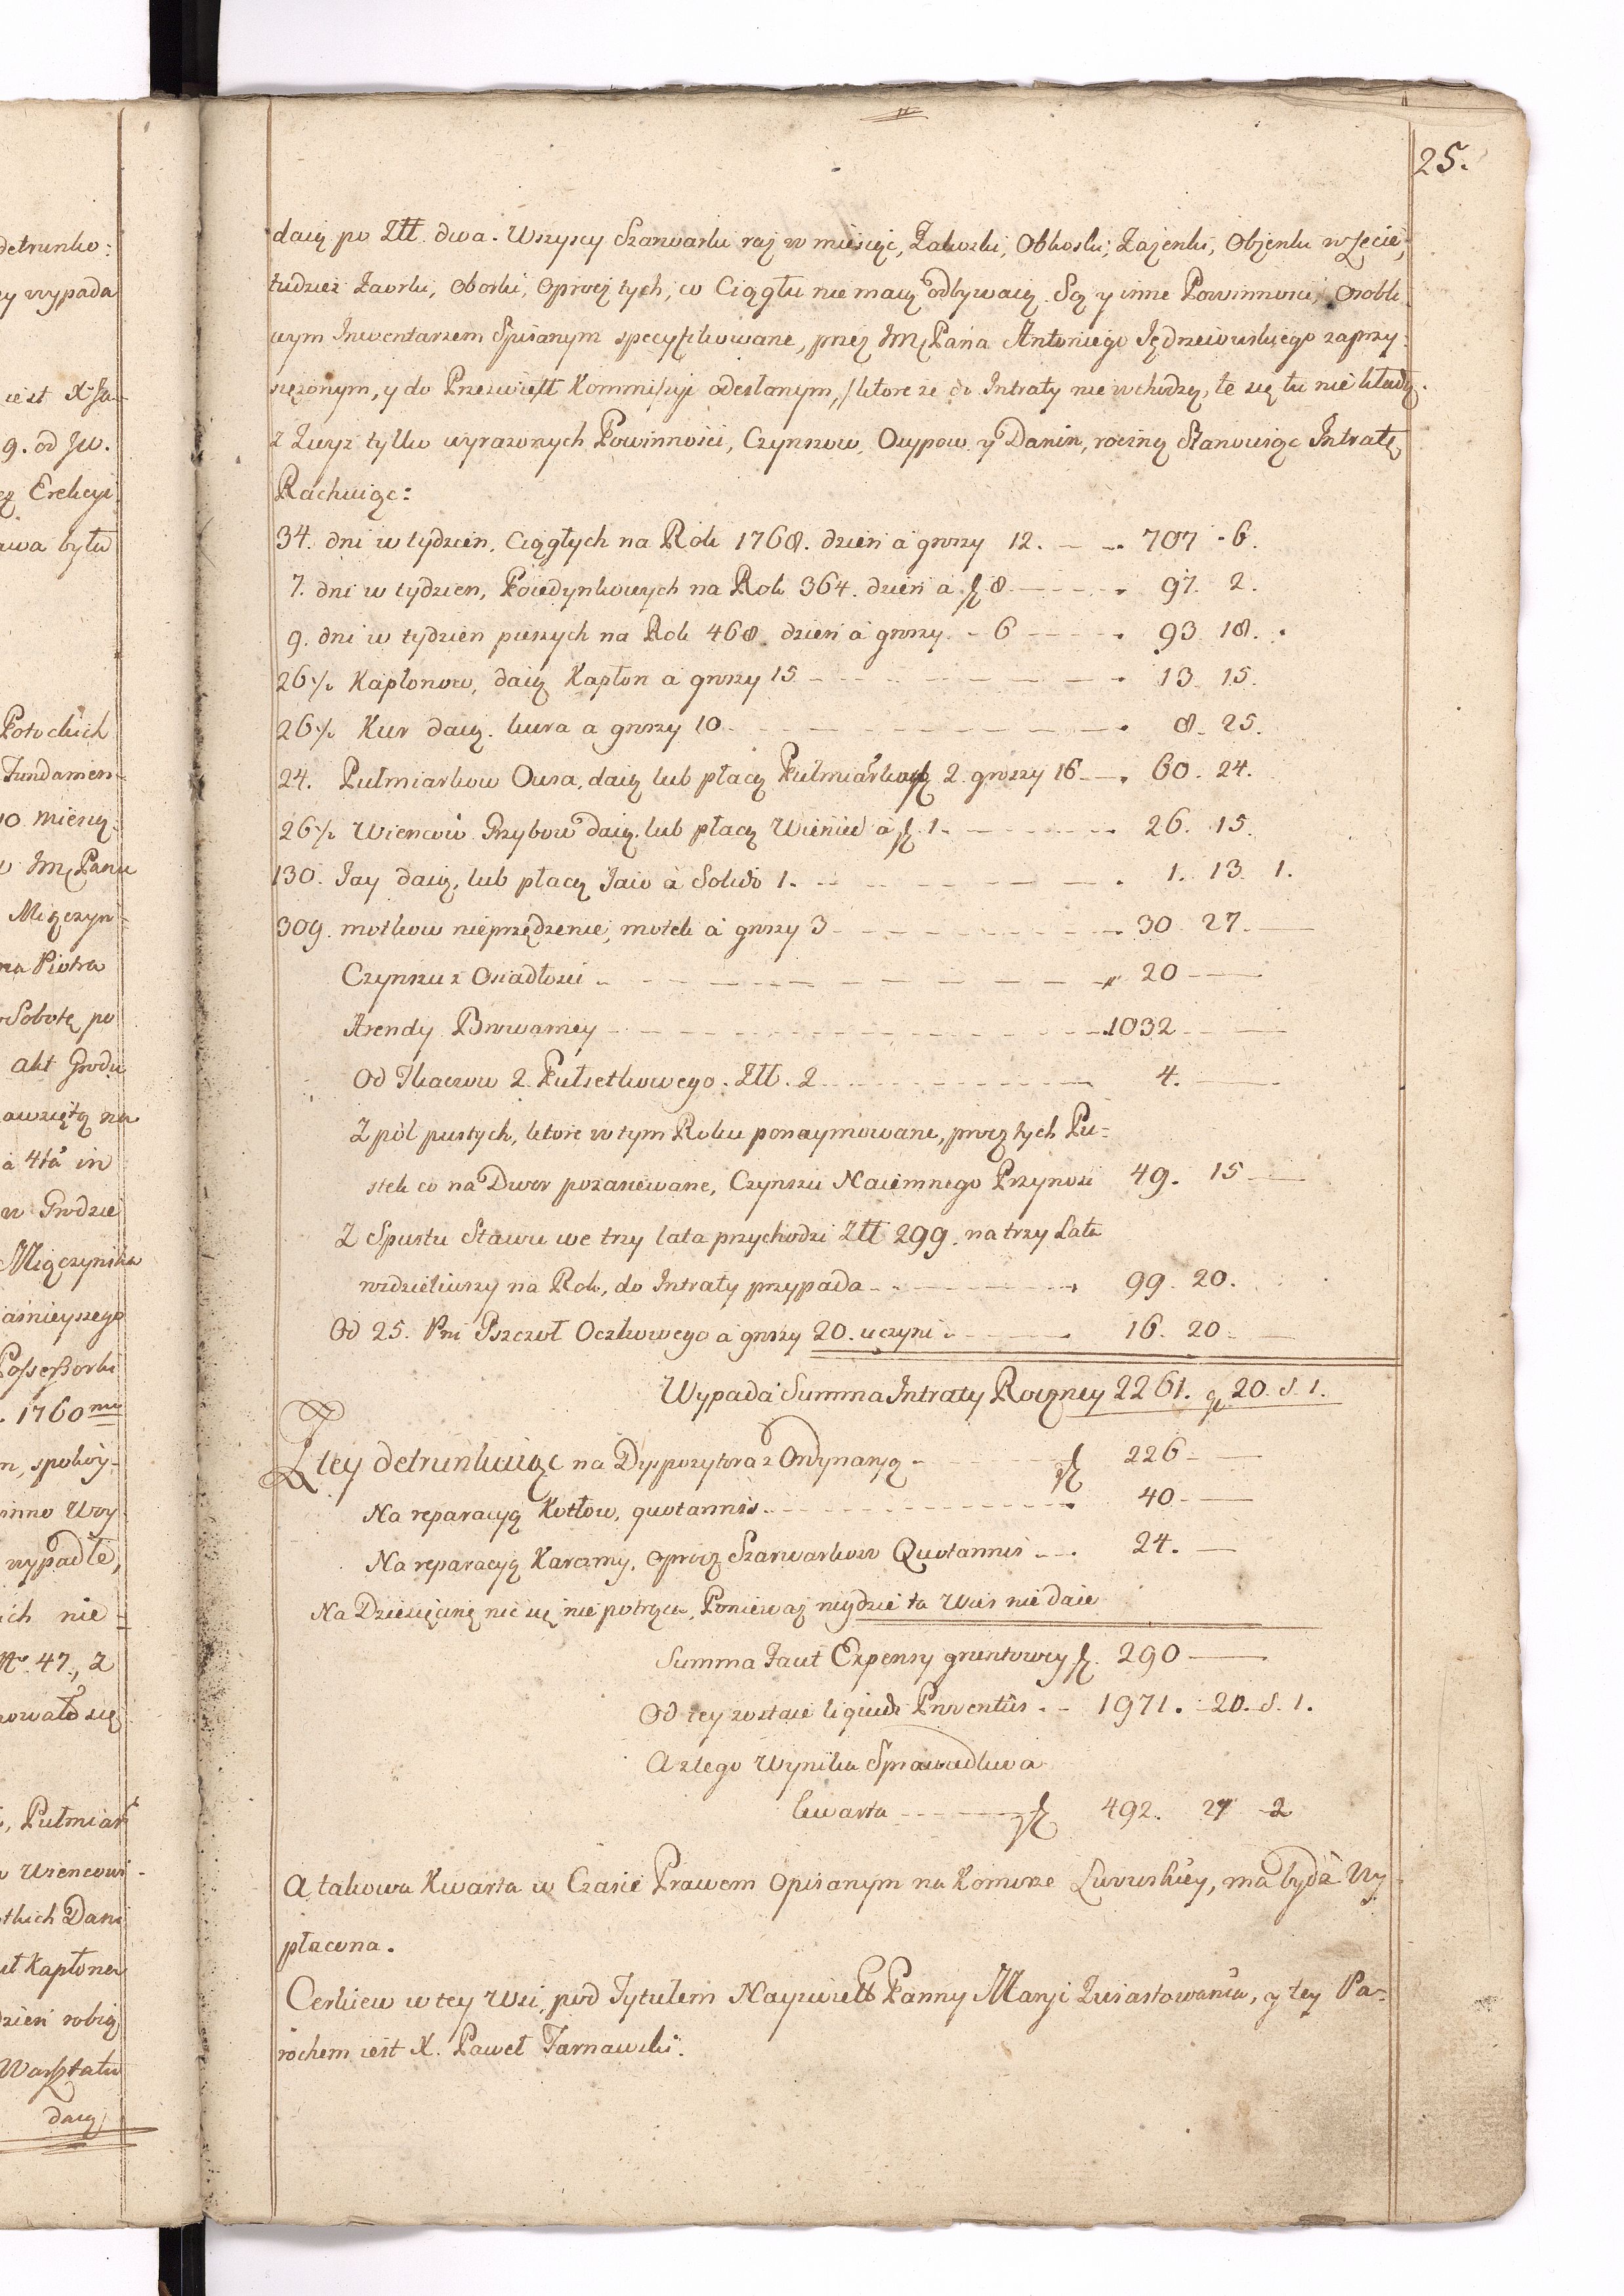 25.
daią po Złł. dwa. Wszyscy Szarwarku raz w miesiąc, Zakoski, Obkoski, Zażenki, Obżenki w Lecie,
tudzież Zaorki, Oborki, oprocz tych, co Ciągłu nie maią odbywaią. Są y inne Powinnosci, Osobli
wym Inwentarzem Spisanym specyfikowane, przez Jm Pana Antoniego Jędrzeiowskiego zaprzy-
siężonym, y do Przeswiętt Kommissyi odesłanym, ktore że do Intraty nie wchodzą, te się tu nie kładą.
z Zwyż tylko wyrażonych Powinności, Czynszow, Osypow y Danin, roczną Stanowiąc Intratę
Rachuiąc:
34. dni w tydzień, Ciągłych na Rok 1768. dzień a groszy 12. 707 . 6.
7. dni w tydzien, Poiedynkowych na Rok 364. dzień a g 8 97. 2.
9. dni w tydzien pieszych na Rok 468 dzień a groszy 6 93 18.
26 ½ Kapłonow, daią Kapłon a groszy 15 13. 15.
26 ½ Kur daią. kura a groszy 10 8. 25.
24. Pułmiarkow Owsa, daią lub płacą Pułmiarkową 2 groszy 16 60. 24.
26 ½ Wiencow Grzybow daią. lub płacą Wieniec a f. 1. 26. 15.
130. Jay daią, lub płacą Jaio a Solido 1. 1. 13. 1.
309. motkow nieprzędzenie, motek a groszy 3 30. 27.
Czynszu z Osiadłosci 20
Arendy Browarney 1032
Od Tkaczow 2. Pułsetkowego. Złł. 2 4.
Z pòl pustych, ktore w tym Roku ponaymowane, procz tych Pu=
stek co na Dwor pozasiewane, Czynszu Naiemnego Przynosi 49. 15
Z Spustu Stawu we trzy lata przychodzi Złł 299. na trzy Lata
rozdzieliwszy na Rok, do Intraty przypada 99. 20.
Od 25. Pni Pszczoł Oczkowego a groszy 20. uczyni 16. 20.
Wypada Summa Intraty Roczney 2261. g 20. s. 1.
Z tey detrunkuiąc na Dyspozytora z Ordynaryą f 226
Na reparacyą Kotłow, quotannis 40.
Na reparacyą Karczmy, oprocz Szarwarkow Quotannis 24.
Na Dziesięcinę nic się nie potrąca, Poniewaz nigdzie ta Wies nie daie
Summa Taut Expensy gruntowey f. 290
Od tey zostaie liquidi Proventûs 1971. 20. s. 1.
A z tego Wynika Sprawadliwa
kwarta f 492. 27 2
A takowa Kwarta w Czasie Prawem opisanym na Komorze Lwowskiey, ma bydz Wy
płacona.
Cerkiew w tey Wsi, pod Tytułem Nayswiętt Panny Maryi Zwiastowania, y tey Pa-
rochem iest X. Paweł Tarnawski.